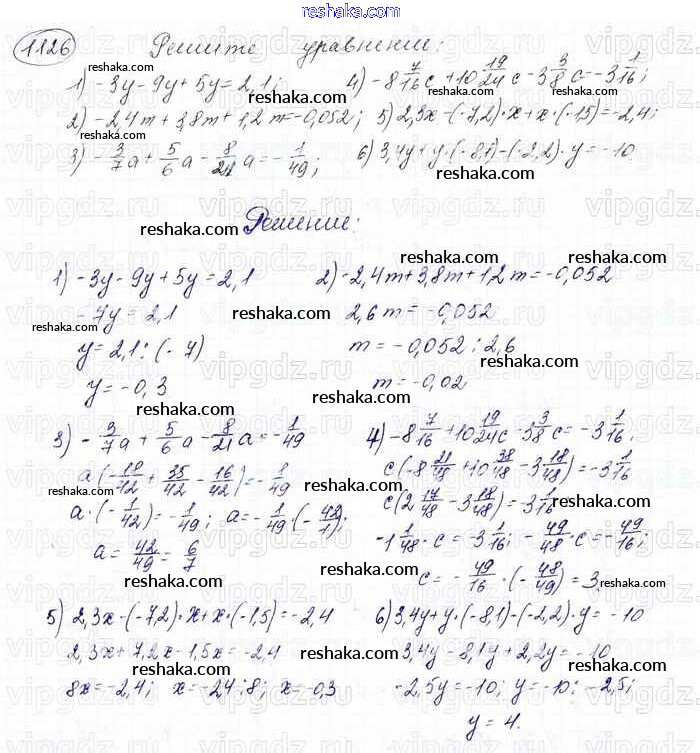 reshaka.com
1126 Решите уравнение:
1) -3y-9y+5y=2,1; 4) -8 7/16 c+10 19/24 c-3 3/8 c=-3 1/16;
2) -2,4m+3,8m+1,2m=-0,052; 5) 2,3x-(-7,2)·x+x·(-1,5)=-2,4;
3) -3/7 a+5/6 a-8/21 a=-1/49; 6) 3,4y+y·(-8,1)-(-2,2)·y=-10
Решение:
1) -3y-9y+5y=2,1 2) -2,4m+3,8m+1,2m=-0,052
-7y=2,1 2,6m=-0,052
y=2,1:(-7) m=-0,052:2,6
y=-0,3 m=-0,02
3) -3/7 a+5/6 a-8/21 a=-1/49 4) -8 7/16+10 19/24 c-3 3/8 c=-3 1/16;
a(-18/42+35/42-16/42)=-1/49 c(-8 21/48+10 38/48-3 18/48)=-3 1/16
a·(-1/42)=-1/49; a=-1/49(-42/1); c(2 17/48-3 18/48)=3 1/16
a=42/49=6/7 -1 1/48·c=-3 1/16; -49/48·c=-49/16;
c=-49/16·(-48/49)=3.
5) 2,3x-(-7,2)·x+x·(-1,5)=-2,4 6) 3,4y+y·(-8,1)-(-2,2)·y=-10
2,3x+7,2x-1,5x=-2,4 3,4y-8,1y+2,2y=-10
8x=-2,4; x=-2,4:8; x=-0,3 -2,5y=-10; y=-10:-2,5;
y=4.